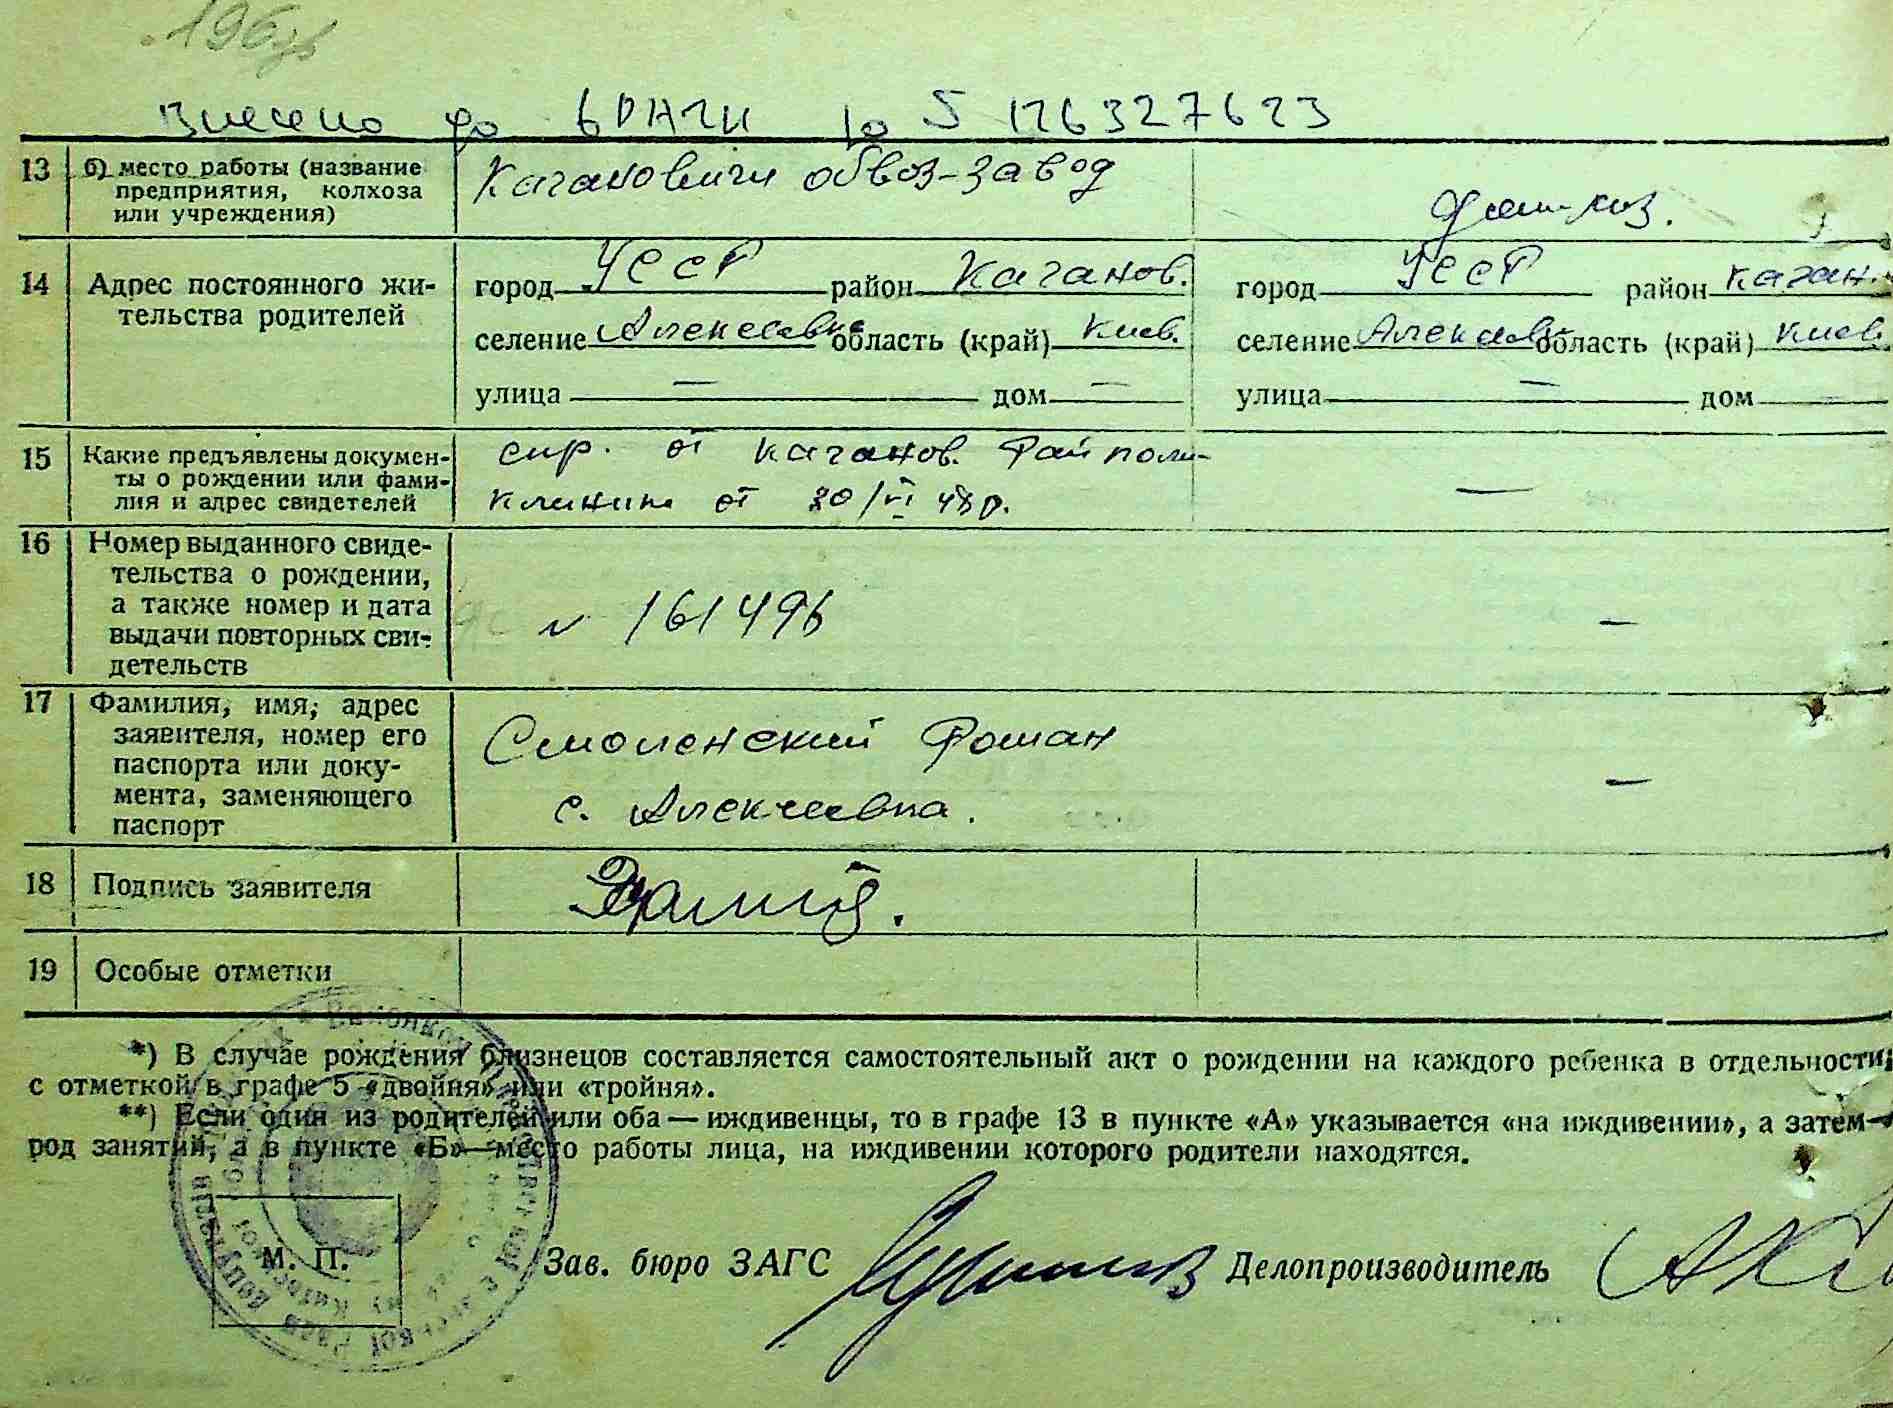 196зв
Внесено до ЄДРАГИ
13 б) место работы (название предприятия, колхоза или учреждения)
Кагановичи обвоз-завод
14 Адрес постоянного жительства родителей
город УССР район Каганов. город УССР район Каган.
селение Алексеевка область (край) Киев. селение область (край) Киев.
улица — дом — улица — дом
15 Какие предъявлены документы о рождении или фамилия и адрес свидетелей
спр. от Каганов. Райполи-
клиники от 30/VI 48 р. —
16 Номер выданного свидетельства о рождении, а также номер и дата выдачи повторных свидетельств
№ 161496 —
17 Фамилия, имя, адрес заявителя, номер его паспорта или документа, заменяющего паспорт
Смоленский Роман
с. Алексеевка. —
18 Подпись заявителя
19 Особые отметки
*) В случае рождения близнецов составляется самостоятельный акт о рождении на каждого ребенка в отдельности
с отметкой в графе 5 «двойня» или «тройня».
**) Если один из родителей или оба — иждивенцы, то в графе 13 в пункте «А» указывается «на иждивении», а затем—
род занятий, а в пункте «Б»—место работы лица, на иждивении которого родители находятся.
М. П.
Зав. бюро ЗАГС Делопроизводитель